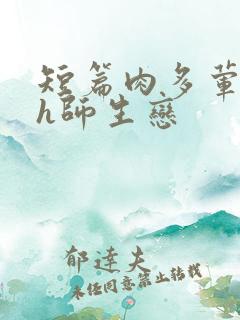 短篇肉多葷
h師生戀
郁達夫
未經同意禁止轉載